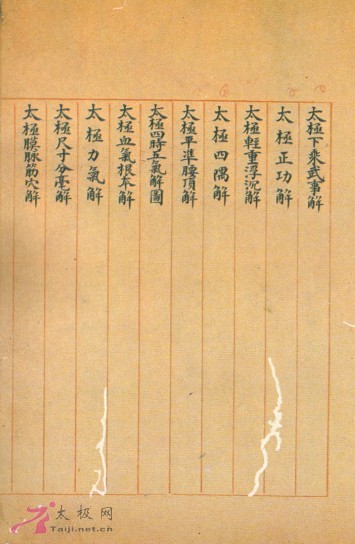 太極下乘武事解
太極正功解
太極輕重浮沉解
太極四隅解
太極平準腰頂解
太極四時五氣解圖
太極血氣根本解
太極力氣解
太極尺寸分毫解
太極膜脉筋穴解
太极网
Taiji.net.cn